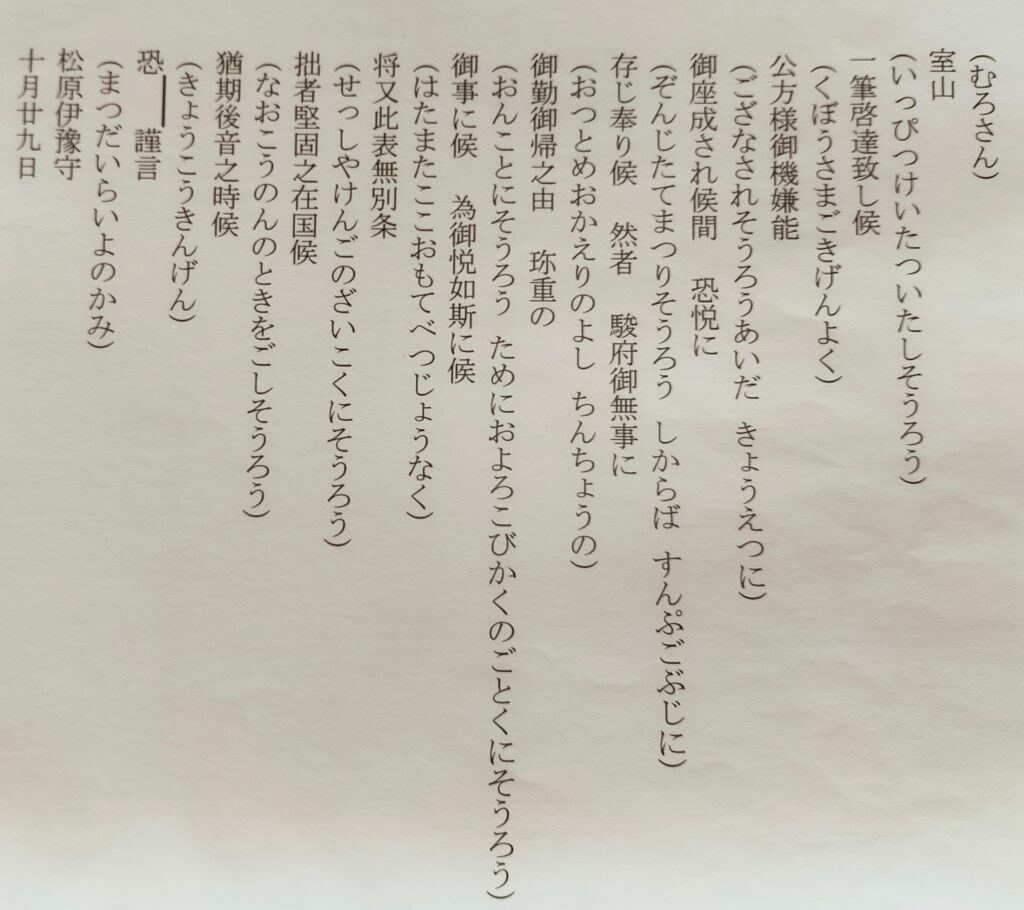 (むろさん)
室山
(いっぴつけいたついたしそうろう)
一筆啓達致し候
(くぼうさまごきげんよく)
公方様御機嫌能
(ござなされそうろうあいだ きょうえつに)
御座成され候間 恐悦に
(ぞんじたてまつりそうろう しからば すんぷごぶじに)
存じ奉り候 然者 駿府御無事に
(おつとめおかえりのよし ちんちょうの)
御勤御帰之由 珎重の
(おんことにそうろう ためにおよろこびかくのごとくにそうろう)
御事に候 為御悦如斯に候
(はたまたここおもてべつじょうなく)
将又此表無別条
(せっしやけんごのざいこくにそうろう)
拙者堅固之在国候
(なおこうのんのときをごしそうろう)
猶期後音之時候
(きょうこうきんげん)
恐―謹言
(まつだいらいよのかみ)
松原伊豫守
十月廿九日